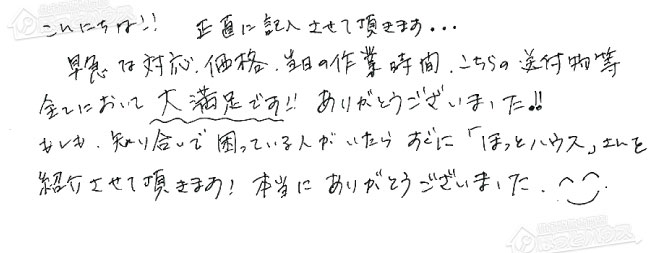 こんにちは!! 正直に記入させて頂きます...
早急な対応、価格、当日の作業時間、こちらの送付物等
全てにおいて大満足です!! ありがとうございました!!
もしも、知り合いで困っている人がいたらすぐに「ほっとハウス」さんを
紹介させて頂きます! 本当にありがとうございました。